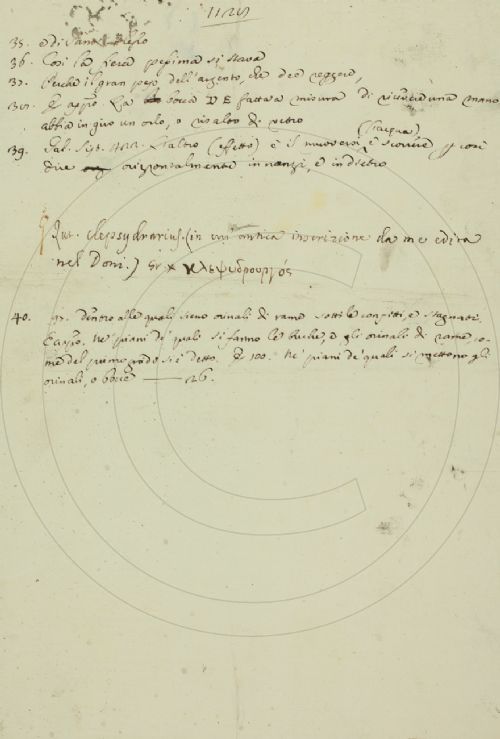 35. e di
36. Così la sera pessima si stava
37. Perchè il gran peso dell'argento, che deo reggere,
38. E appo. La bocca DE fatta a misura di una mano
abbia in giro un orlo, o risalto di vetro
(l'acqua)
39. Gal. Sist. 422. L'altro (effetto) è il muoversi, e scorrere p così
dire orizzontalmente innanzi, e indietro
Aut. clepsydrarius (in un' antica inscrizione da me edita
nel Doni.) κλεψυδρουργός
40. 97. Dentro alle quali sieno orinali di rame sottile confitti, e stagnati.
E appo. Ne' piani de' quali si fanno le buche, e gli orinali di rame, co-
me del primo modo si è detto. E 100. Ne' piani de' quali si mettono gli
orinali, o bocce — 26.